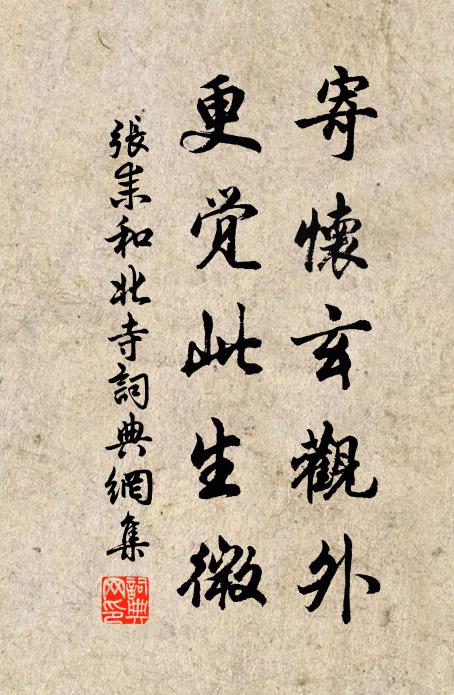 寄懷玄觀外
更覺此生微
張耒和北寺詞典網集
詞典网印